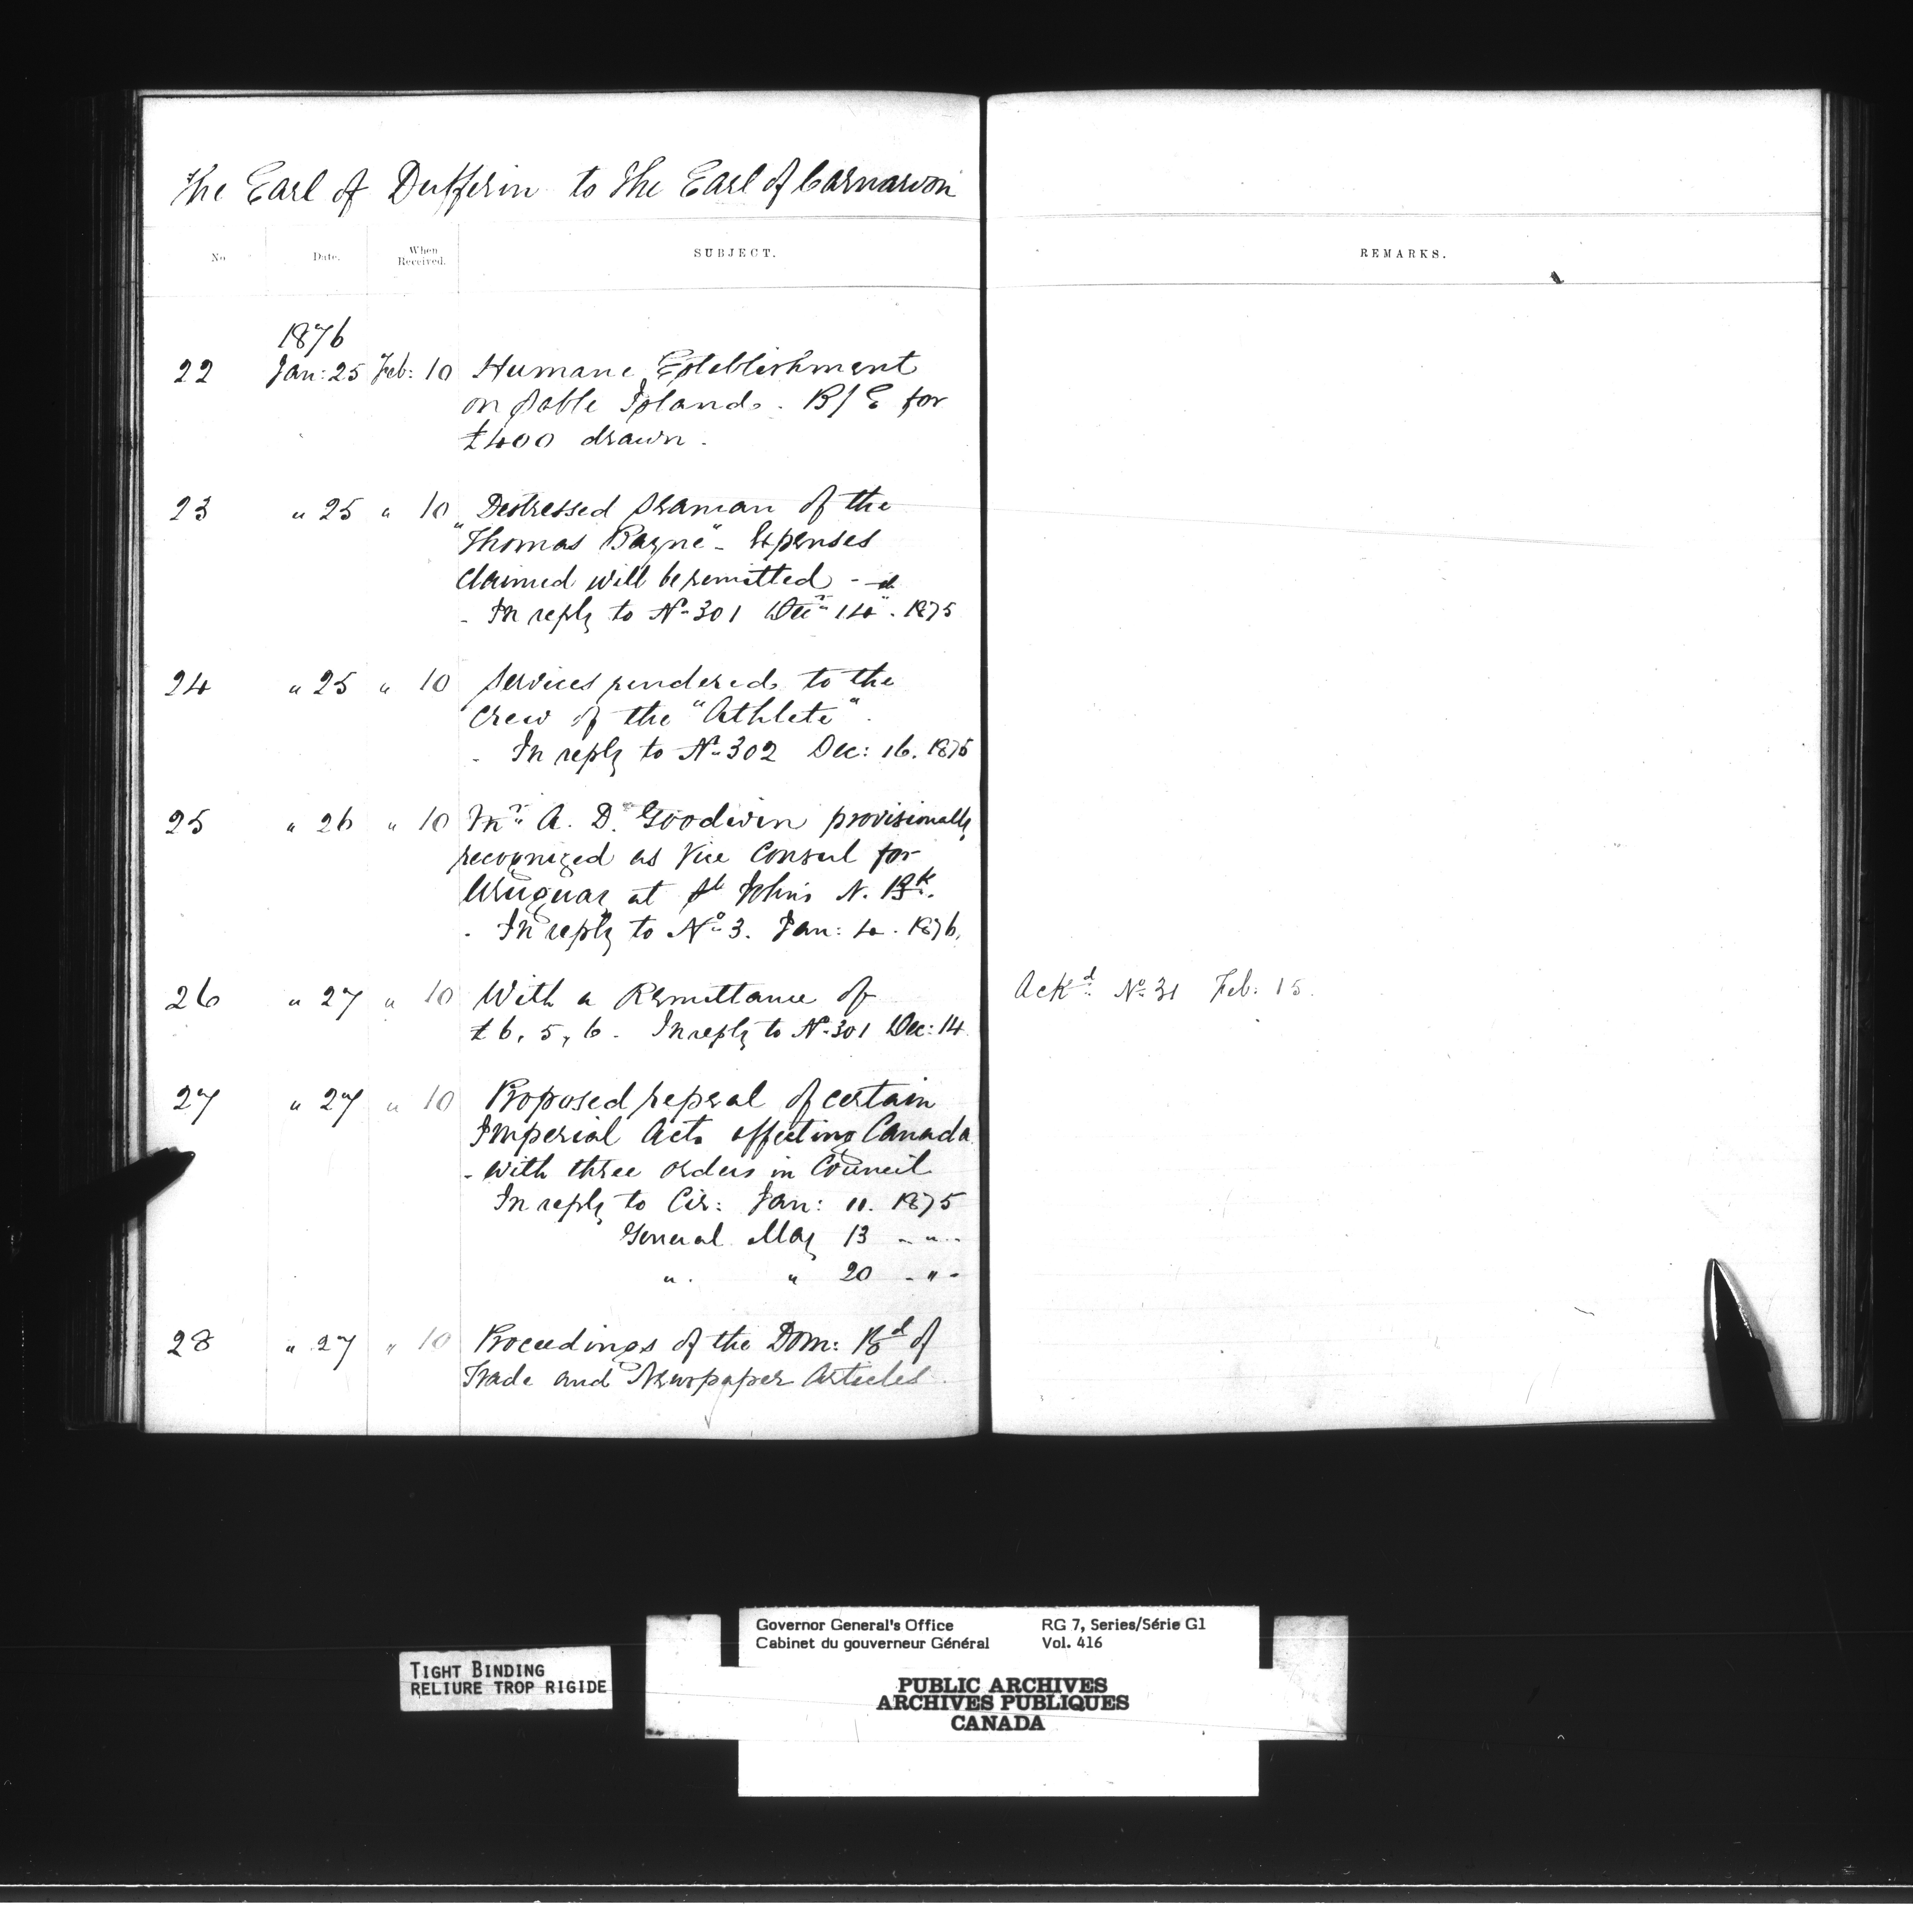 The Earl of Dufferin to The Earl of Carnarvon
No Date. When Received. SUBJECT. REMARKS.
1876
22 Jan: 25 Feb: 10 Humane Establishment
on Sable Islands. B/E for
£400 drawn.
23 " 25 " 10 Distressed Seaman of the
"Thomas Bayne" - Expenses
claimed will be remitted -
- In reply to No 301 Decr 14th. 1875
24 " 25 " 10 Services rendered to the
crew of the "Athlete".
- In reply to No 302 Dec: 16. 1875
25 " 26 " 10 Mr A. D. Goodwin provisionally
recognized as Vice Consul for
Uruguay at St John's N. Bk.
- In reply to No 3. Jan: 4. 1876.
26 " 27 " 10 With a Remittance of Ackd No 31 Feb: 15.
£6, 5, 6. In reply to No 301 Dec: 14
27 " 27 " 10 Proposed repeal of certain
Imperial Acts affecting Canada
- with three orders in Council
In reply to Cir: Jan: 11. 1875
General May 13 - " -
" " 20 - " -
28 " 27 " 10 Proceedings of the Dom: Bd of
Trade and Newspaper Articles.
Governor General's Office RG 7, Series/Série G1
Cabinet du gouverneur Général Vol. 416
TIGHT BINDING
RELIURE TROP RIGIDE
PUBLIC ARCHIVES
ARCHIVES PUBLIQUES
CANADA